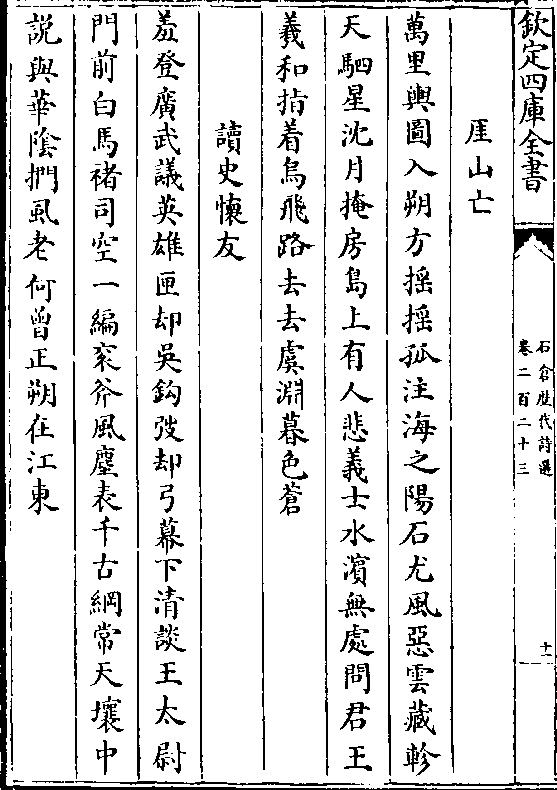 欽定四庫全書
石倉歷代詩選
卷二百二十三
十一
厓山亡
萬里輿圖入朔方摇摇孤注海之陽石尤風惡雲藏軫
天駟星沈月掩房島上有人悲義士水濱無處問君王
羲和指着烏飛路去去虞淵暮色蒼
讀史懷友
羞登廣武議英雄匣却吳鈎弢却弓幕下清談王太尉
門前白馬褚司空一編衮斧風塵表千古綱常天壤中
説與華陰捫虱老何曽正朔在江東